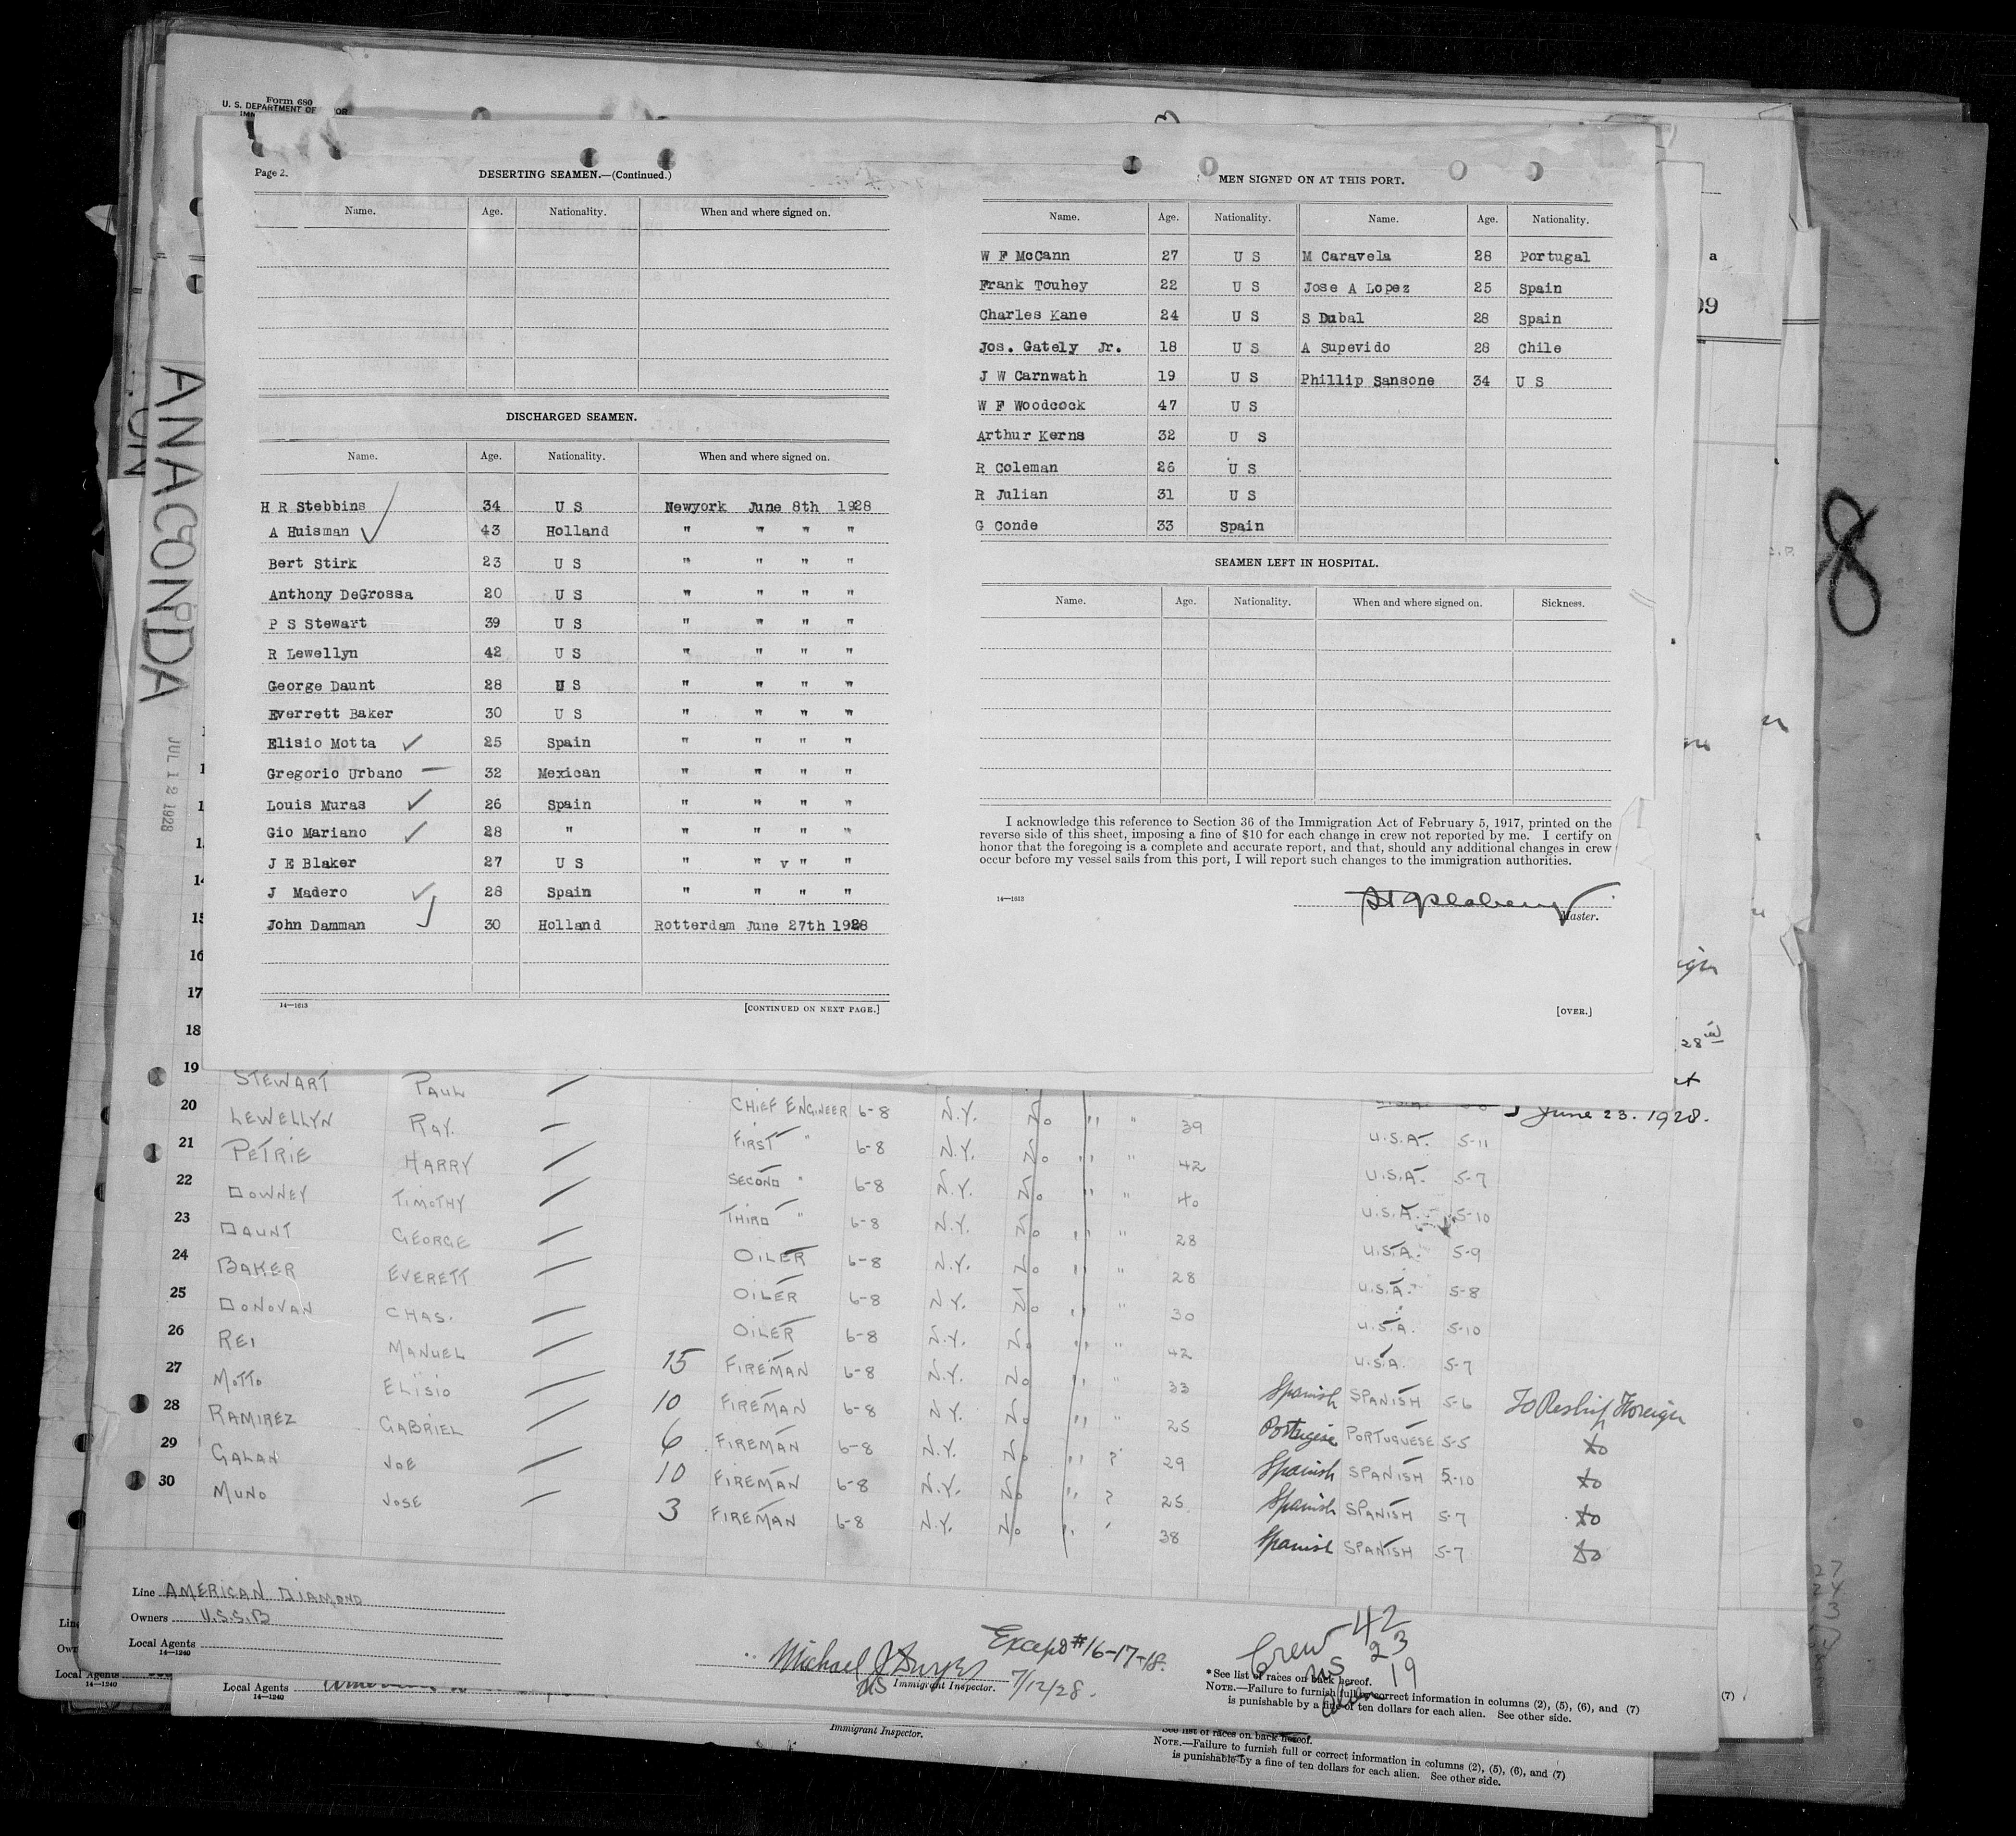 Form 680
U. S. DEPARTMENT OF
ANACONDA
JUL 12 1928
Page 2.
DESERTING SEAMEN.—(Continued.)
Name. Age. Nationality. When and where signed on.
DISCHARGED SEAMEN.
Name. Age. Nationality. When and where signed on.
H R Stebbins 34 U S Newyork June 8th 1928
A Huisman 43 Holland " " " "
Bert Stirk 23 U S " " " "
Anthony DeGrossa 20 U S " " " "
P S Stewart 39 U S " " " "
R Lewellyn 42 U S " " " "
George Daunt 28 U S " " " "
Everrett Baker 30 U S " " " "
Elisio Motta 25 Spain " " " "
Gregorio Urbano 32 Mexican " " " "
Louis Muras 26 Spain " " " "
Gio Mariano 28 " " " " "
J E Blaker 27 U S " " v " "
J Madero 28 Spain " " " "
John Damman 30 Holland Rotterdam June 27th 1928
14—1613 [CONTINUED ON NEXT PAGE.]
MEN SIGNED ON AT THIS PORT.
Name. Age. Nationality. Name. Age. Nationality.
W F McCann 27 U S M Caravela 28 Portugal
Frank Touhey 22 U S Jose A Lopez 25 Spain
Charles Kane 24 U S S Dubal 28 Spain
Jos. Gately Jr. 18 U S A Supevido 28 Chile
J W Carnwath 19 U S Phillip Sansone 34 U S
W F Woodcock 47 U S
Arthur Kerns 32 U S
R Coleman 26 U S
R Julian 31 U S
G Conde 33 Spain
SEAMEN LEFT IN HOSPITAL.
Name. Age. Nationality. When and where signed on. Sickness.
I acknowledge this reference to Section 36 of the Immigration Act of February 5, 1917, printed on the
reverse side of this sheet, imposing a fine of $10 for each change in crew not reported by me. I certify on
honor that the foregoing is a complete and accurate report, and that, should any additional changes in crew
occur before my vessel sails from this port, I will report such changes to the immigration authorities.
14—1613
Master.
[OVER.]
8
14
15
16
17
18
June 23. 1928.
19 STEWART PAUL CHIEF ENGINEER 6-8 N.Y. No " " 39 U.S.A. 5-11
20 LEWELLYN RAY. FIRST " 6-8 N.Y. No " " 42 U.S.A. 5-7
21 PETRIE HARRY SECOND " 6-8 N.Y. No " " 40 U.S.A. 5-10
22 DOWNEY TIMOTHY THIRD " 6-8 N.Y. No " " 28 U.S.A. 5-9
23 DAUNT GEORGE OILER 6-8 N.Y. No " " 28 U.S.A. 5-8
24 BAKER EVERETT OILER 6-8 N.Y. No " " 30 U.S.A. 5-10
25 DONOVAN CHAS. OILER 6-8 N.Y. No " " 42 U.S.A. 5-7
26 REI MANUEL 15 FIREMAN 6-8 N.Y. No " " 33 Spanish SPANISH 5-6 To Reship Foreign
27 MOTTO ELISIO 10 FIREMAN 6-8 N.Y. No " " 25 Portugese PORTUGUESE 5-5 do
28 RAMIREZ GABRIEL 6 FIREMAN 6-8 N.Y. No " " 29 Spanish SPANISH 5-10 do
29 GALAN JOE 10 FIREMAN 6-8 N.Y. No " " 25 Spanish SPANISH 5-7 do
30 MUNO JOSE 3 FIREMAN 6-8 N.Y. No " " 38 Spanish SPANISH 5-7 do
Line AMERICAN DIAMOND
Owners U.S.S.B
Local Agents
14—1240
Except #16-17-18.
Michael J
US Immigrant Inspector. 7/12/28.
Crew 42
US 23
Alien 19
*See list of races on back hereof.
NOTE.—Failure to furnish full or correct information in columns (2), (5), (6), and (7)
is punishable by a fine of ten dollars for each alien. See other side.
Local Agents
14—1240
Local Agents
14—1240
Immigrant Inspector.
See list of races on back hereof.
NOTE.—Failure to furnish full or correct information in columns (2), (5), (6), and (7)
is punishable by a fine of ten dollars for each alien. See other side.
(7)